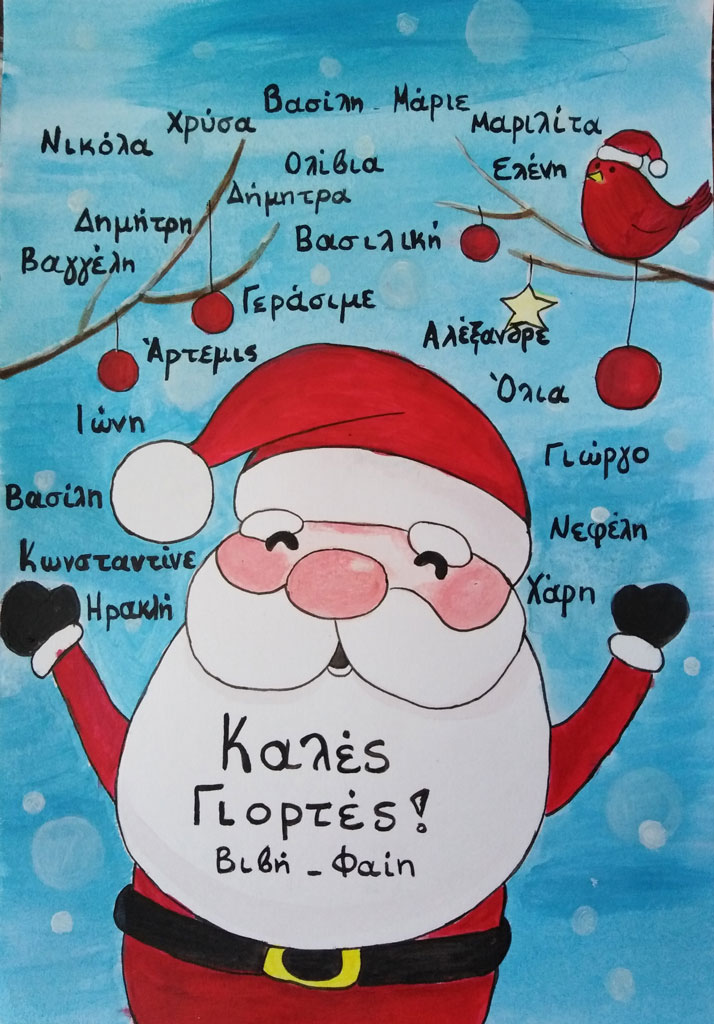 Βασίλη - Μάριε
Χρύσα
Μαριλίτα
Νικόλα
Ολίβια
Ελένη
Δήμητρα
Δημήτρη
Βασιλική
Βαγγέλη
Γεράσιμε
Αλέξανδρε
Άρτεμις
Όλια
Ιώνη
Γιώργο
Βασίλη
Νεφέλη
Κωνσταντίνε
Χάρη
Ηρακλή
Καλές
Γιορτές!
Βιβή - Φαίη